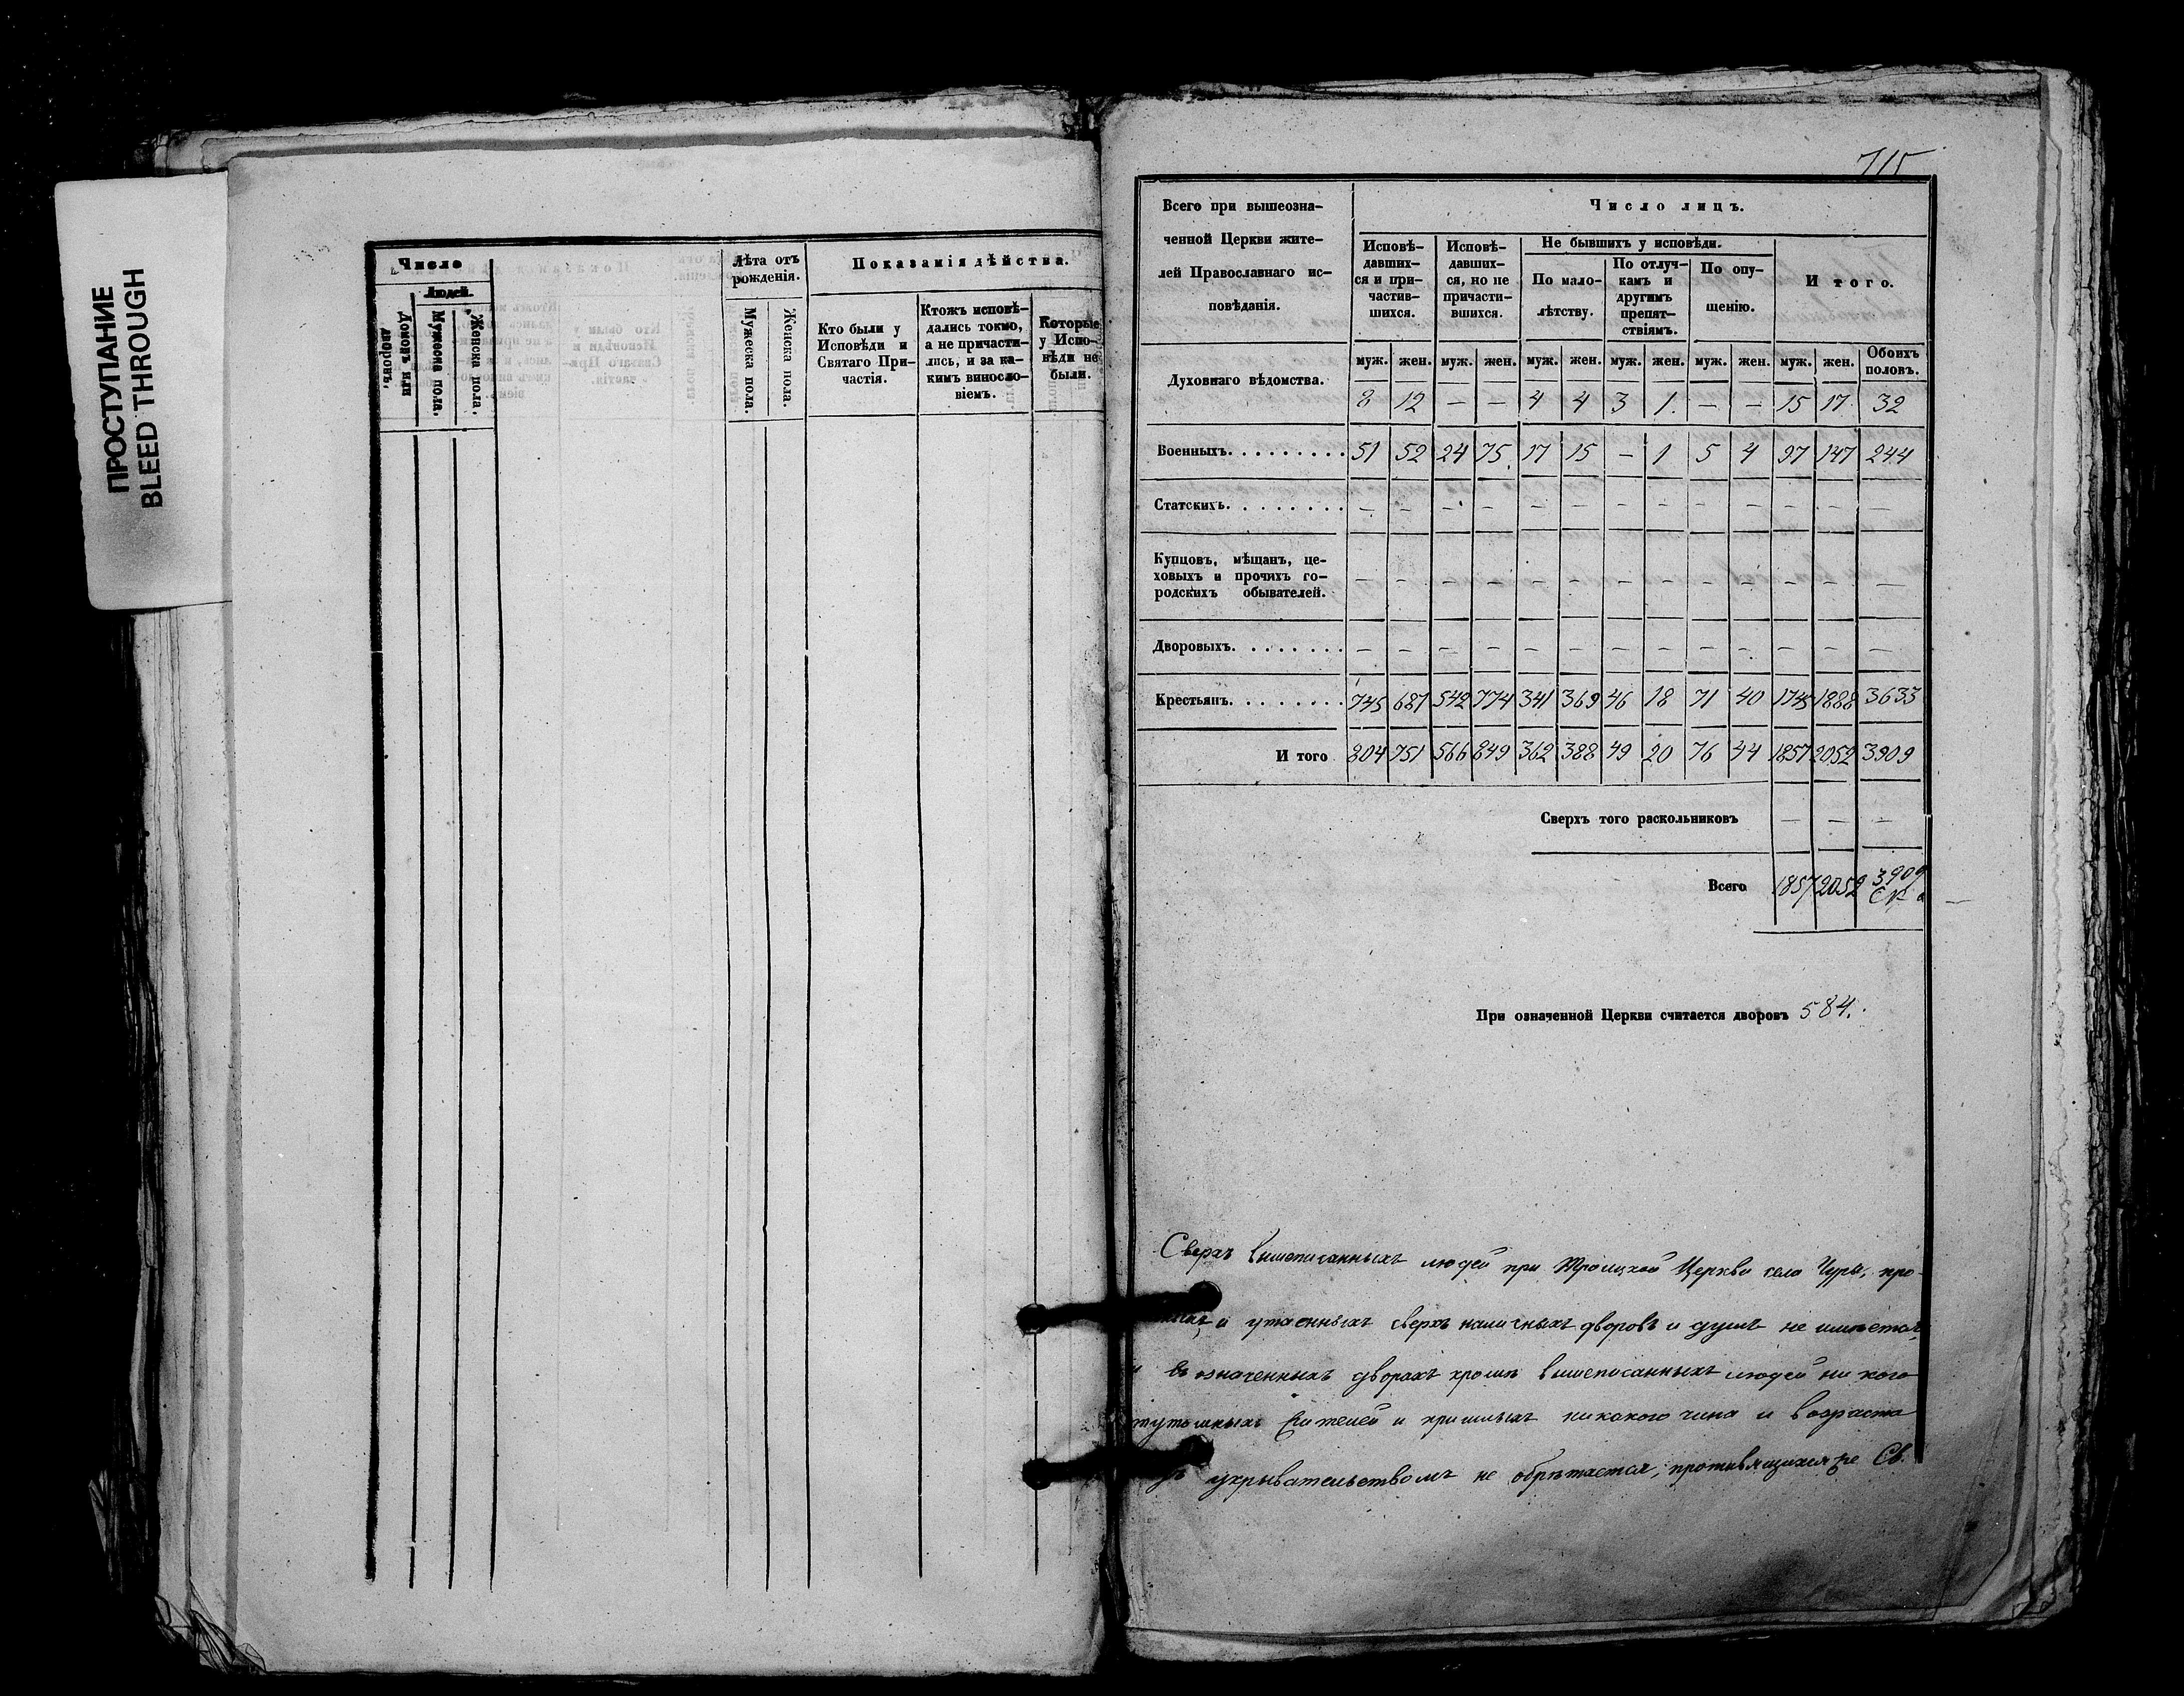 ПРОСТУПАНИЕ
BLEED THROUGH
Число
Людей.
Домовъ или дворовъ.
Мужеска пола.
Женска пола.
Лѣта отъ рожденія.
Мужеска пола.
Женска пола.
Показанія дѣйства.
Кто были у Исповѣди и Святаго Причастія.
Ктожъ исповѣдались токмо, а не причастились, и за какимъ винословіемъ.
Которые у Исповѣди не были.
715
Всего при вышеозначенной Церкви жителей Православнаго исповѣданія.
Число лицъ.
Исповѣдавшихся и причастившихся.
Исповѣдавшихся, но не причастившихся.
Не бывшихъ у исповѣди.
По малолѣтству.
По отлучкамъ и другимъ препятствіямъ.
По опущенію.
И того.
муж. жен. муж. жен. муж. жен. муж. жен. муж. жен. муж. жен. Обоихъ половъ.
Духовнаго вѣдомства. 8 12 — — 4 4 3 1. — — 15 17. 32
Военныхъ. 51 52 24 75. 17 15 — 1 5 4 97 147 244
Статскихъ. — — — — — — — — — — — — —
Купцовъ, мѣщанъ, цеховыхъ и прочихъ городскихъ обывателей. — — — — — — — — — — — — —
Дворовыхъ. — — — — — — — — — — — — —
Крестьянъ. 745 687 542 774 341 369 46 18 71 40 1745 1888 3633
И того 804 751 566 849 362 388 49 20 76 44 1857 2052 3909
Сверхъ того раскольниковъ — — —
Всего 1857 2052 3909
При означенной Церкви считается дворовъ 584.
Сверхъ вышеписанныхъ людей при Троицкой Церкви села Чуры, про-
и утаенныхъ сверхъ наличныхъ дворовъ и душъ не имѣется,
въ означенныхъ дворахъ кромѣ вышеписанныхъ людей ни кого
тутошныхъ жителей и пришлыхъ никакого чина и возраста
укрывательствомъ не обрѣтается, противящихся же Св.